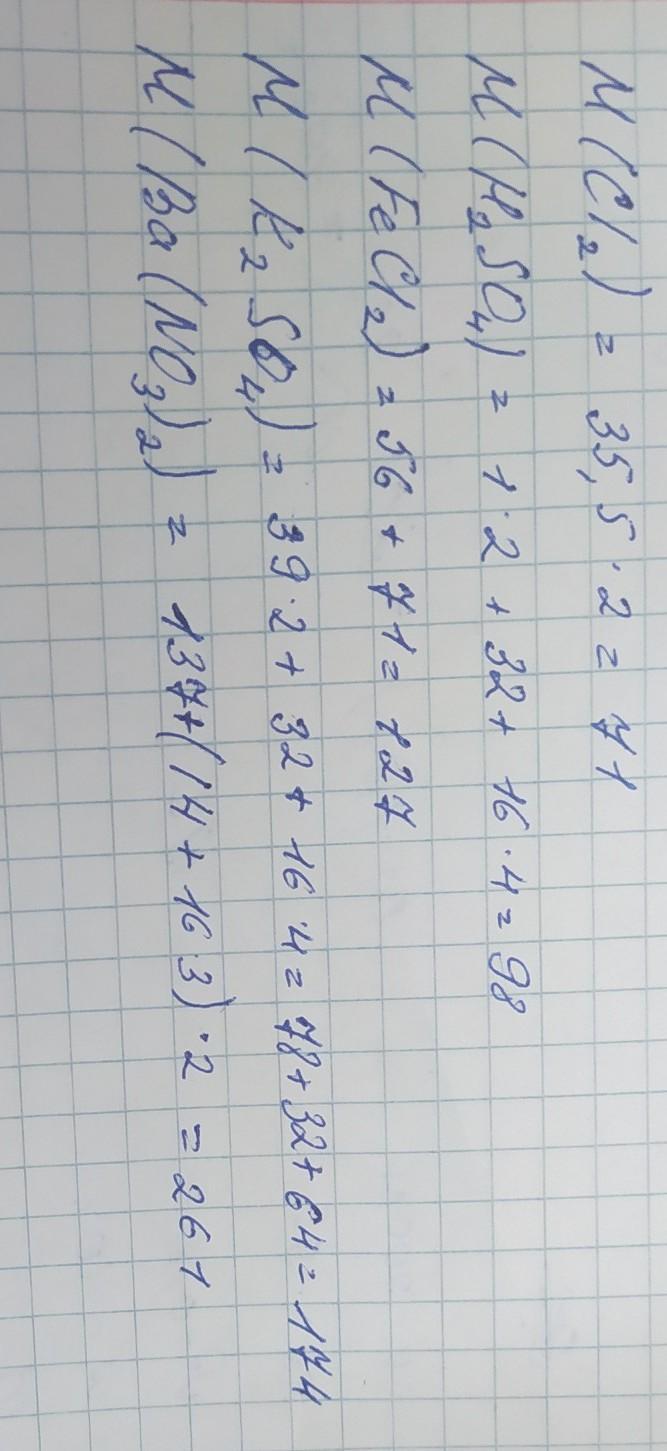 M(Cl₂) = 35,5·2 = 71
M(H₂SO₄) = 1·2 + 32 + 16·4 = 98
M(FeCl₂) = 56 + 71 = 127
M(K₂SO₄) = 39·2 + 32 + 16·4 = 78 + 32 + 64 = 174
M(Ba(NO₃)₂) = 137+(14 + 16·3)·2 = 261